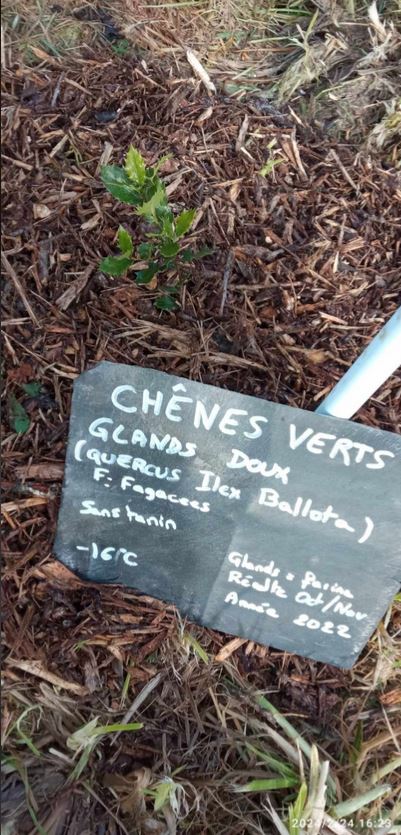 CHÊNES VERTS
GLANDS DOUX
(QUERCUS Ilex Ballota)
F: Fagacées
Sans tanin
-16°C
Glands = Farine
Rédte Oct/Nov
Année 2022
2024/2/24 16:23